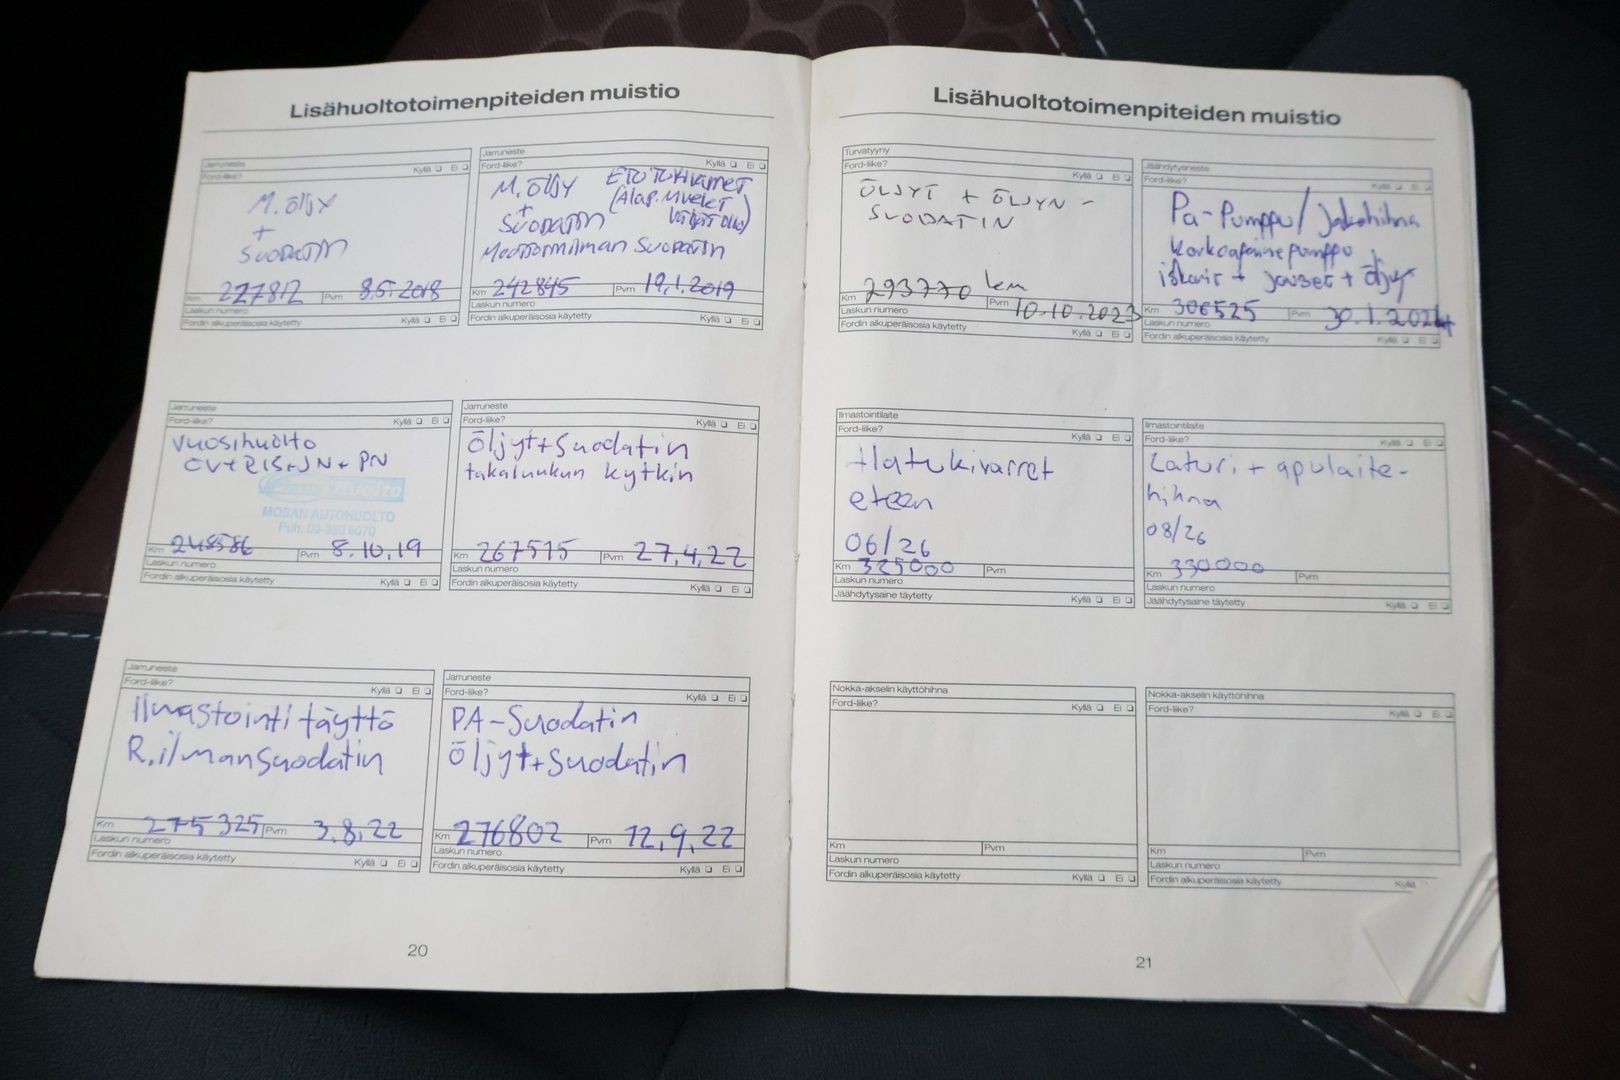 Lisähuoltotoimenpiteiden muistio
Jarruneste
Ford-liike? Kyllä Ei
M. öljy
+
SUODATIN
Km 227812 Pvm 8.5.2018
Laskun numero
Fordin alkuperäisosia käytetty Kyllä Ei
Jarruneste
Ford-liike? Kyllä Ei
M. ÖLJY ETUTUKIVARRET
+ (Alap.
SUODATIN
Moottorinilman SUODATIN
Km 242845 Pvm 19.1.2019
Laskun numero
Fordin alkuperäisosia käytetty Kyllä Ei
Jarruneste
Ford-liike? Kyllä Ei
vuosihuolto
CV+RIS+JN+PN
Huolto
MOSAN AUTOHUOLTO
Puh. 09-350 6070
Km 248586 Pvm 8.10.19
Laskun numero
Fordin alkuperäisosia käytetty Kyllä Ei
Jarruneste
Ford-liike? Kyllä Ei
Öljyt+Suodatin
takaluukun kytkin
Km 267515 Pvm 27.4.22
Laskun numero
Fordin alkuperäisosia käytetty Kyllä Ei
Jarruneste
Ford-liike? Kyllä Ei
Ilmastointi täyttö
R.ilmansuodatin
Km 275325 Pvm 3.8.22
Laskun numero
Fordin alkuperäisosia käytetty Kyllä Ei
Jarruneste
Ford-liike? Kyllä Ei
PA-Suodatin
öljyt+Suodatin
Km 276802 Pvm 12.9.22
Laskun numero
Fordin alkuperäisosia käytetty Kyllä Ei
20
Lisähuoltotoimenpiteiden muistio
Turvatyyny
Ford-liike? Kyllä Ei
ÖLJYT + ÖLJYN-
SUODATIN
Km 293770 km Pvm 10.10.2023
Laskun numero
Fordin alkuperäisosia käytetty Kyllä Ei
Jäähdytysneste
Ford-liike? Kyllä Ei
Pa-Pumppu/jakohihna
korkeapainepumppu
iskarit + jouset + öljyt
Km 306525 Pvm 30.1.2024
Laskun numero
Fordin alkuperäisosia käytetty Kyllä Ei
Ilmastointilaite
Ford-liike? Kyllä Ei
+latukivarret
eteen
06/26
Km 325000 Pvm
Laskun numero
Jäähdytysaine täytetty Kyllä Ei
Ilmastointilaite
Ford-liike? Kyllä Ei
Laturi + apulaite-
hihna
08/26
Km 330000 Pvm
Laskun numero
Jäähdytysaine täytetty Kyllä Ei
Nokka-akselin käyttöhihna
Ford-liike? Kyllä Ei
Km Pvm
Laskun numero
Fordin alkuperäisosia käytetty Kyllä Ei
Nokka-akselin käyttöhihna
Ford-liike? Kyllä Ei
Km Pvm
Laskun numero
Fordin alkuperäisosia käytetty Kyllä
21